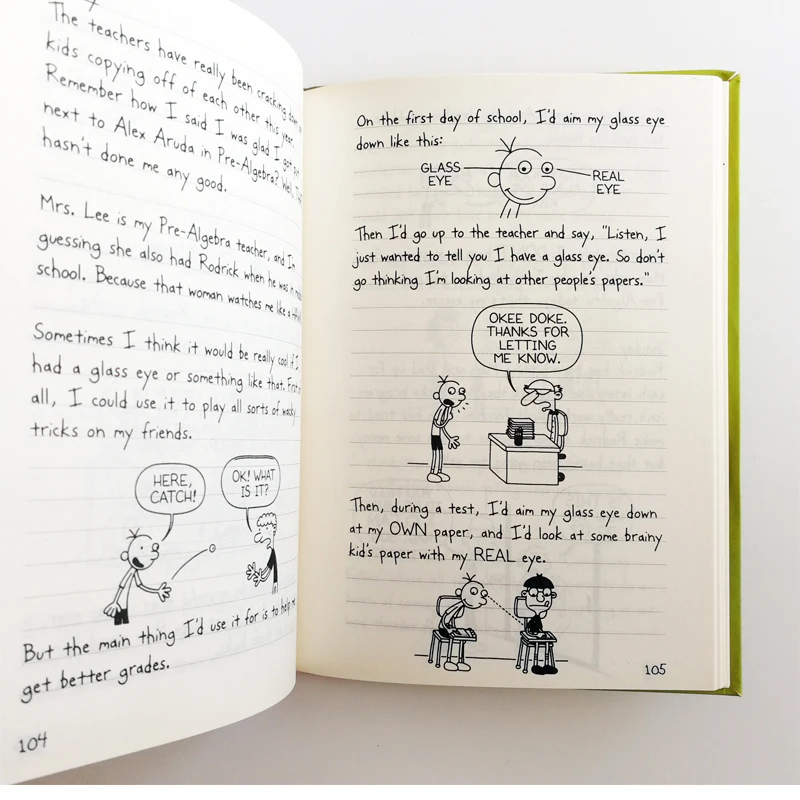 The teachers have really been cracking down
kids copying off of each other this year.
Remember how I said I was glad I got put
next to Alex Aruda in Pre-Algebra? Well,
hasn't done me any good.
Mrs. Lee is my Pre-Algebra teacher, and I'm
guessing she also had Rodrick when he was in
school. Because that woman watches me like a
Sometimes I think it would be really cool if I
had a glass eye or something like that. First
all, I could use it to play all sorts of wacky
tricks on my friends.
HERE,
CATCH!
OK! WHAT
IS IT?
But the main thing I'd use it for is to help me
get better grades.
104
On the first day of school, I'd aim my glass eye
down like this:
GLASS
EYE
REAL
EYE
Then I'd go up to the teacher and say, "Listen, I
just wanted to tell you I have a glass eye. So don't
go thinking I'm looking at other people's papers."
OKEE DOKE.
THANKS FOR
LETTING
ME KNOW.
Then, during a test, I'd aim my glass eye down
at my OWN paper, and I'd look at some brainy
kid's paper with my REAL eye.
105